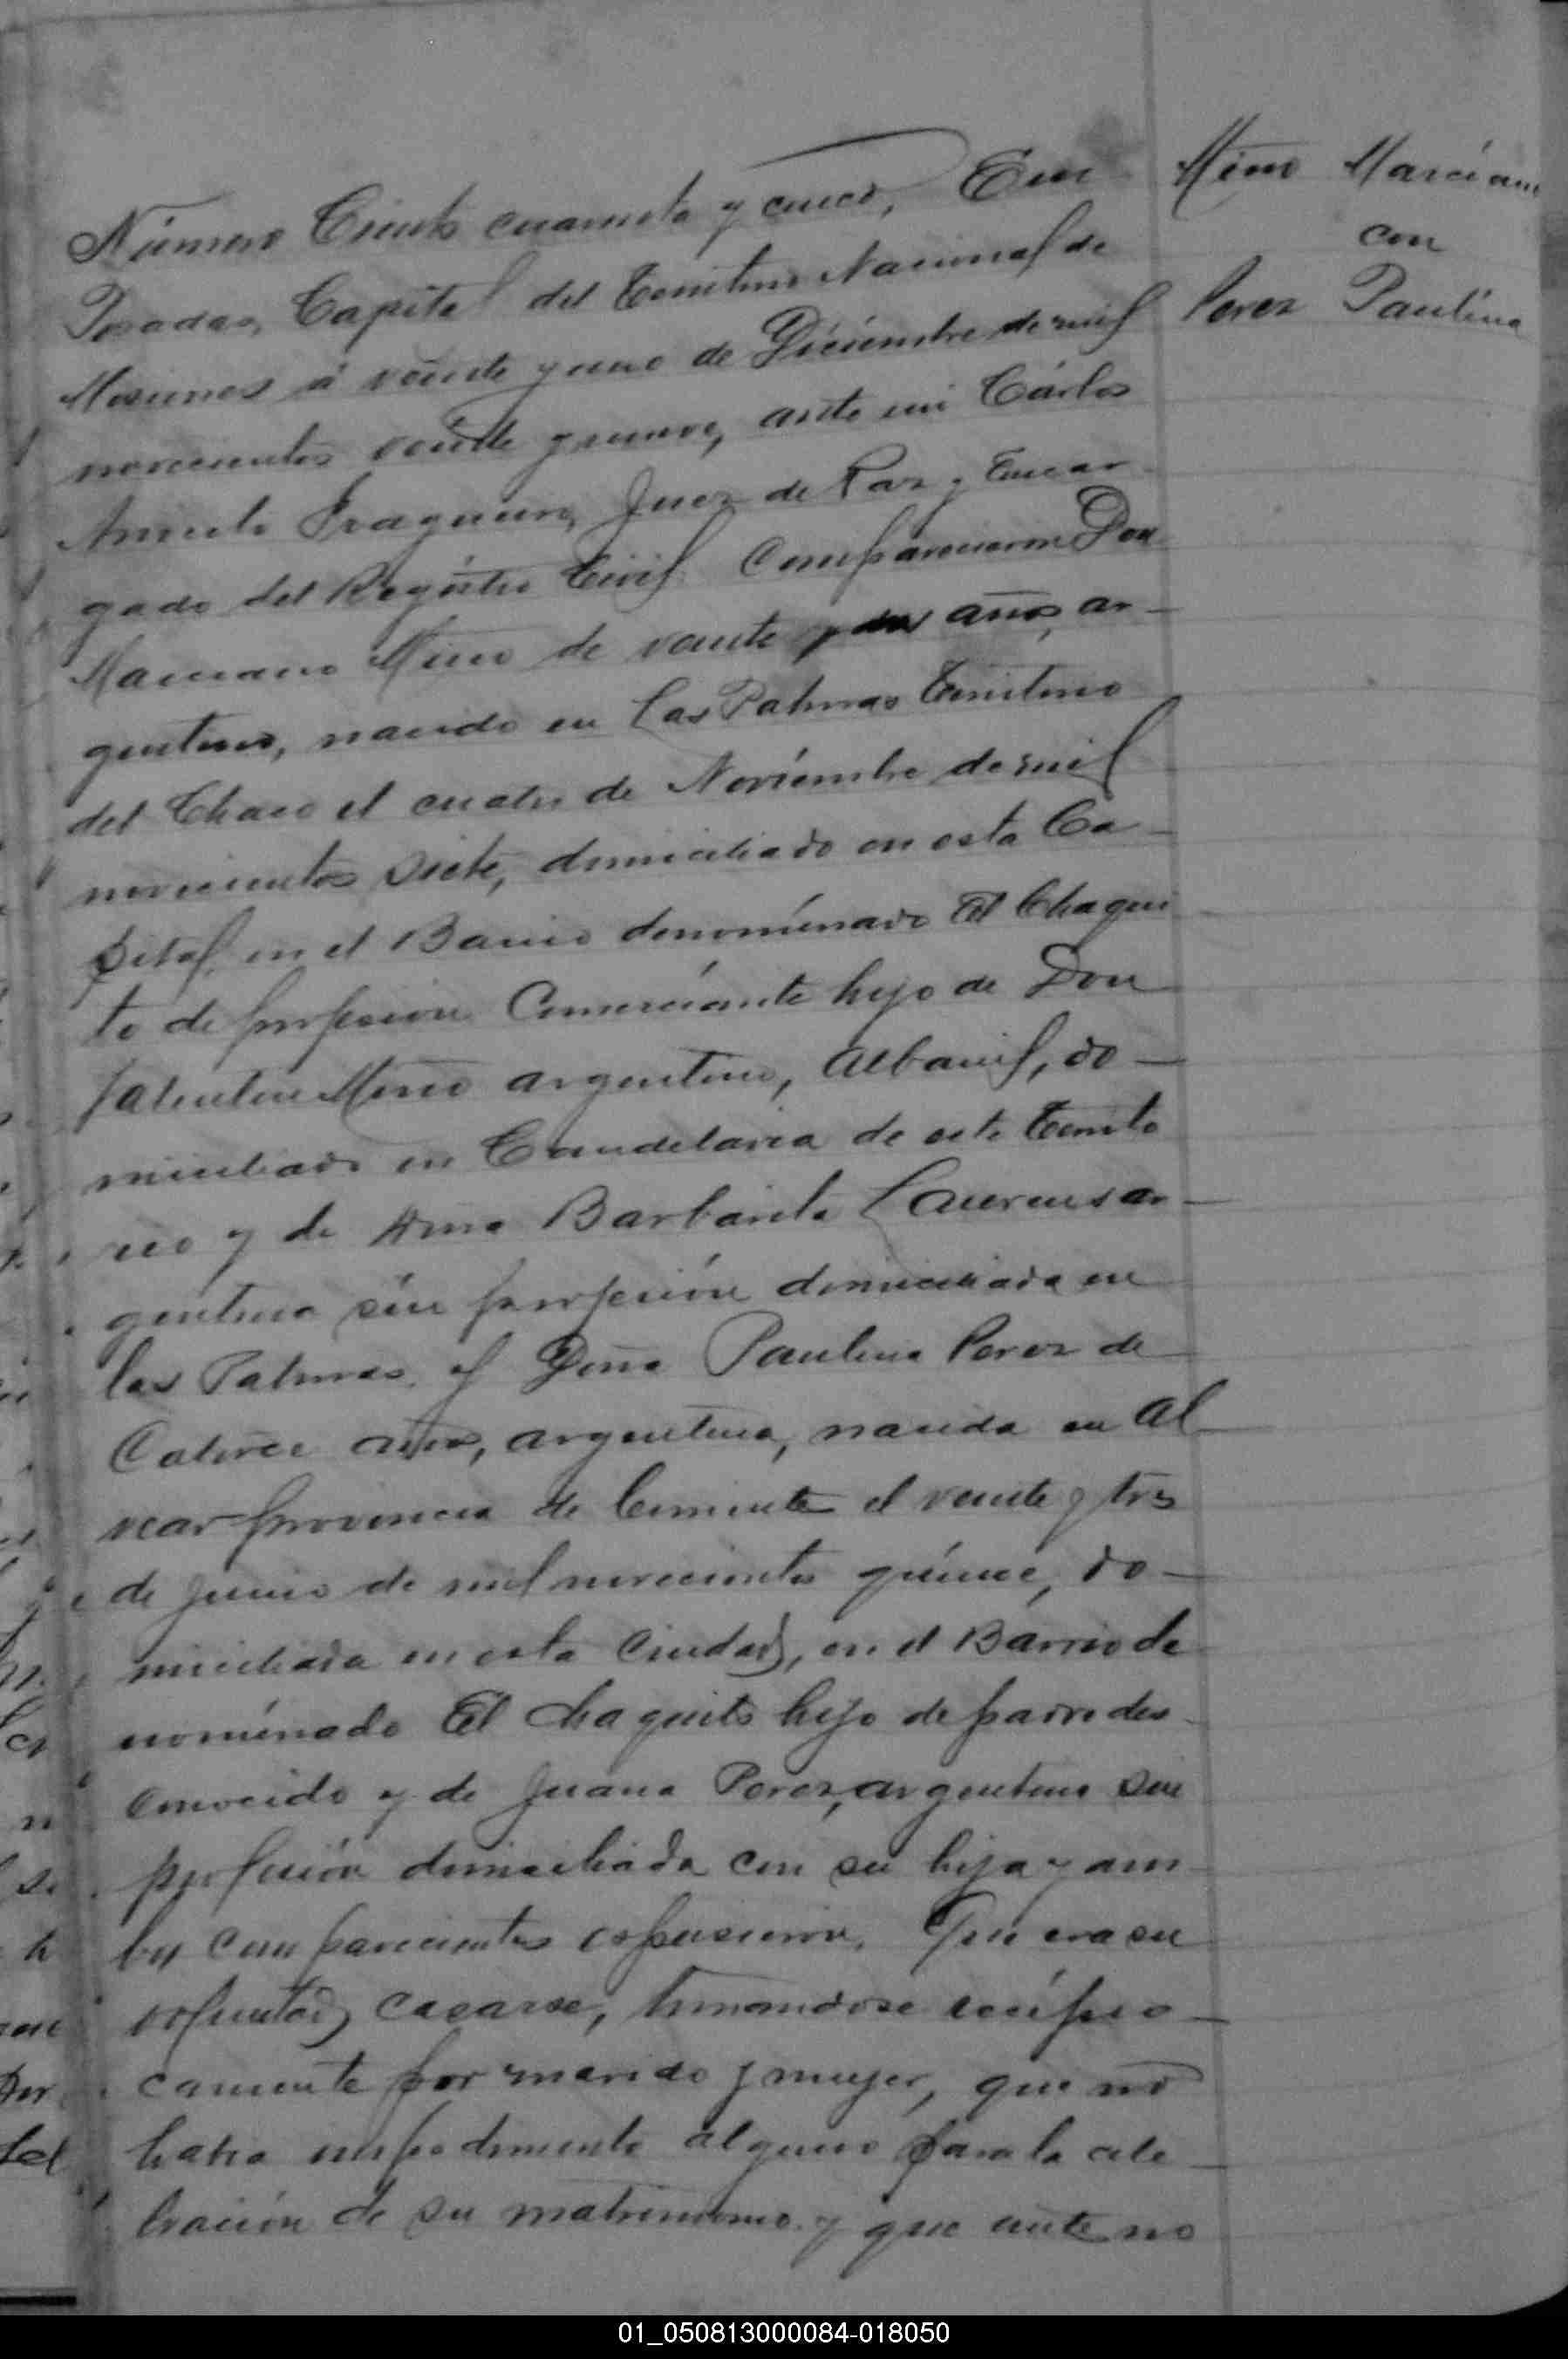 Número Ciento cuarenta y cinco, En
Posadas, Capital del Territorio Nacional de
Misiones á veinte y uno de Diciembre de mil
novecientos veinte y nueve, ante mi Cárlos
Aniceto Fragueiro, Juez de Paz y Encar-
gado del Registro Civil Comparecieron Don
Marciano Miño de veinte y dos años, ar-
gentino, nacido en Las Palmas Territorio
del Chaco el cuatro de Noviembre de mil
novecientos siete, domiciliado en esta Ca-
pital, en el Barrio denominado El Chaqui
to de profesion Comerciante hijo de Don
Valentin Miño argentino, albañil, do-
miciliado en Candelaria de este Territo
rio y de Ana Barbarita Laurens ar-
gentina sin profesión domiciliada en
las Palmas. y Doña Paulina Perez de
Catorce años, argentina, nacida en Al
vear provincia de Corrientes el veinte y tres
de junio de mil novecientos quince, do-
miciliada en esta Ciudad, en el Bárrio de
nominado El Chaquito hija de padre des
conocido y de Juana Perez, argentina sin
profesión domiciliada con su hija y am
bos comparecientes expusieron. Que era su
voluntad casarse, tomandose recípro-
camente por marido y mujer, que no
habia impedimento alguno para la cele-
bración de su matrimonio y que ante no
Miño Marciano
con
Perez Paulina
01_050813000084-018050